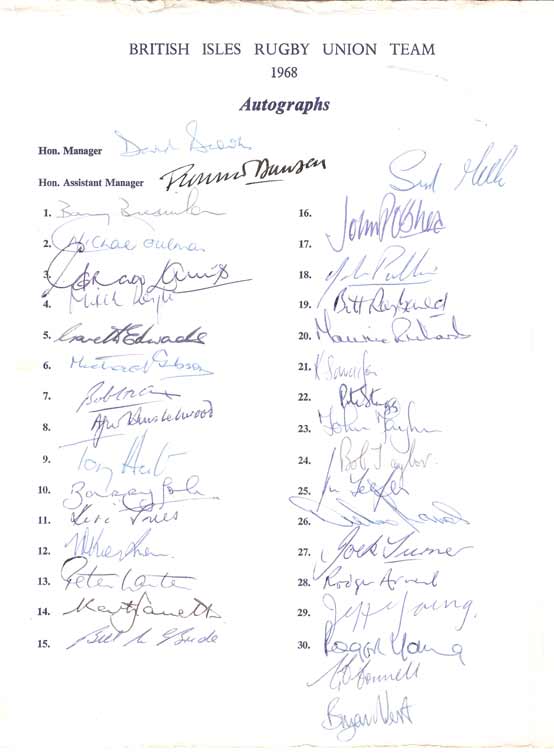 BRITISH ISLES RUGBY UNION TEAM
1968
Autographs
Hon. Manager David
Hon. Assistant Manager Ronnie Dawson
Syd
1. Barry Bresnihan
2. Michael Coulman
3.
4.
5. Gareth Edwards
6. Michael Gibson
7. Bob
8.
9. Tony
10. Barry John
11. Ken
12.
13. Peter
14. Keith Jarrett
15. Bill McBride
16.
17. John P O'Shea
18. John Pullin
19. Bill Raybould
20. Maurice Richards
21. K Savage
22. Pete Stagg
23. John Taylor
24. Bob Taylor
25. Jim Telfer
26.
27. Jock Turner
28. Rodger Arneil
29. Jeff Young.
30. Roger Young
O'Connell
Bryan West